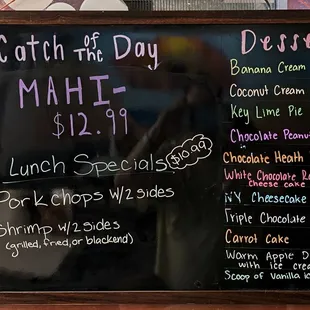 Catch of the Day
MAHI-
$12.99
Lunch Specials $10.99
Pork chops w/2 sides
Shrimp w/2 sides
(grilled, fried, or blackend)
Banana Cream
Coconut Cream
Key Lime Pie
Chocolate
Chocolate Heath
White Chocolate
cheese cake
NY Cheesecake
Triple Chocolate
Carrot Cake
Warm Apple
with ice
Scoop of Vanilla